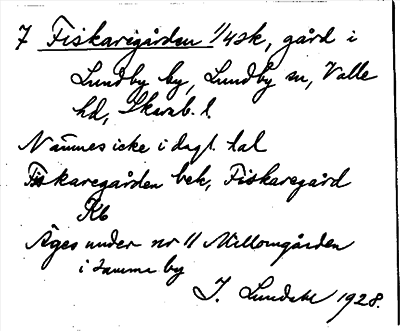 7 Fiskaregården 1/4 sk, gård i
Lundby by, Lundby sn, Valle
hd, Skarab. l.
Nämnes icke i dagl. tal
Fiskaregården bek, Fiskaregård
Kb
Äges under nr 11 Mellomgården
i samma by
J. Lundahl 1928.